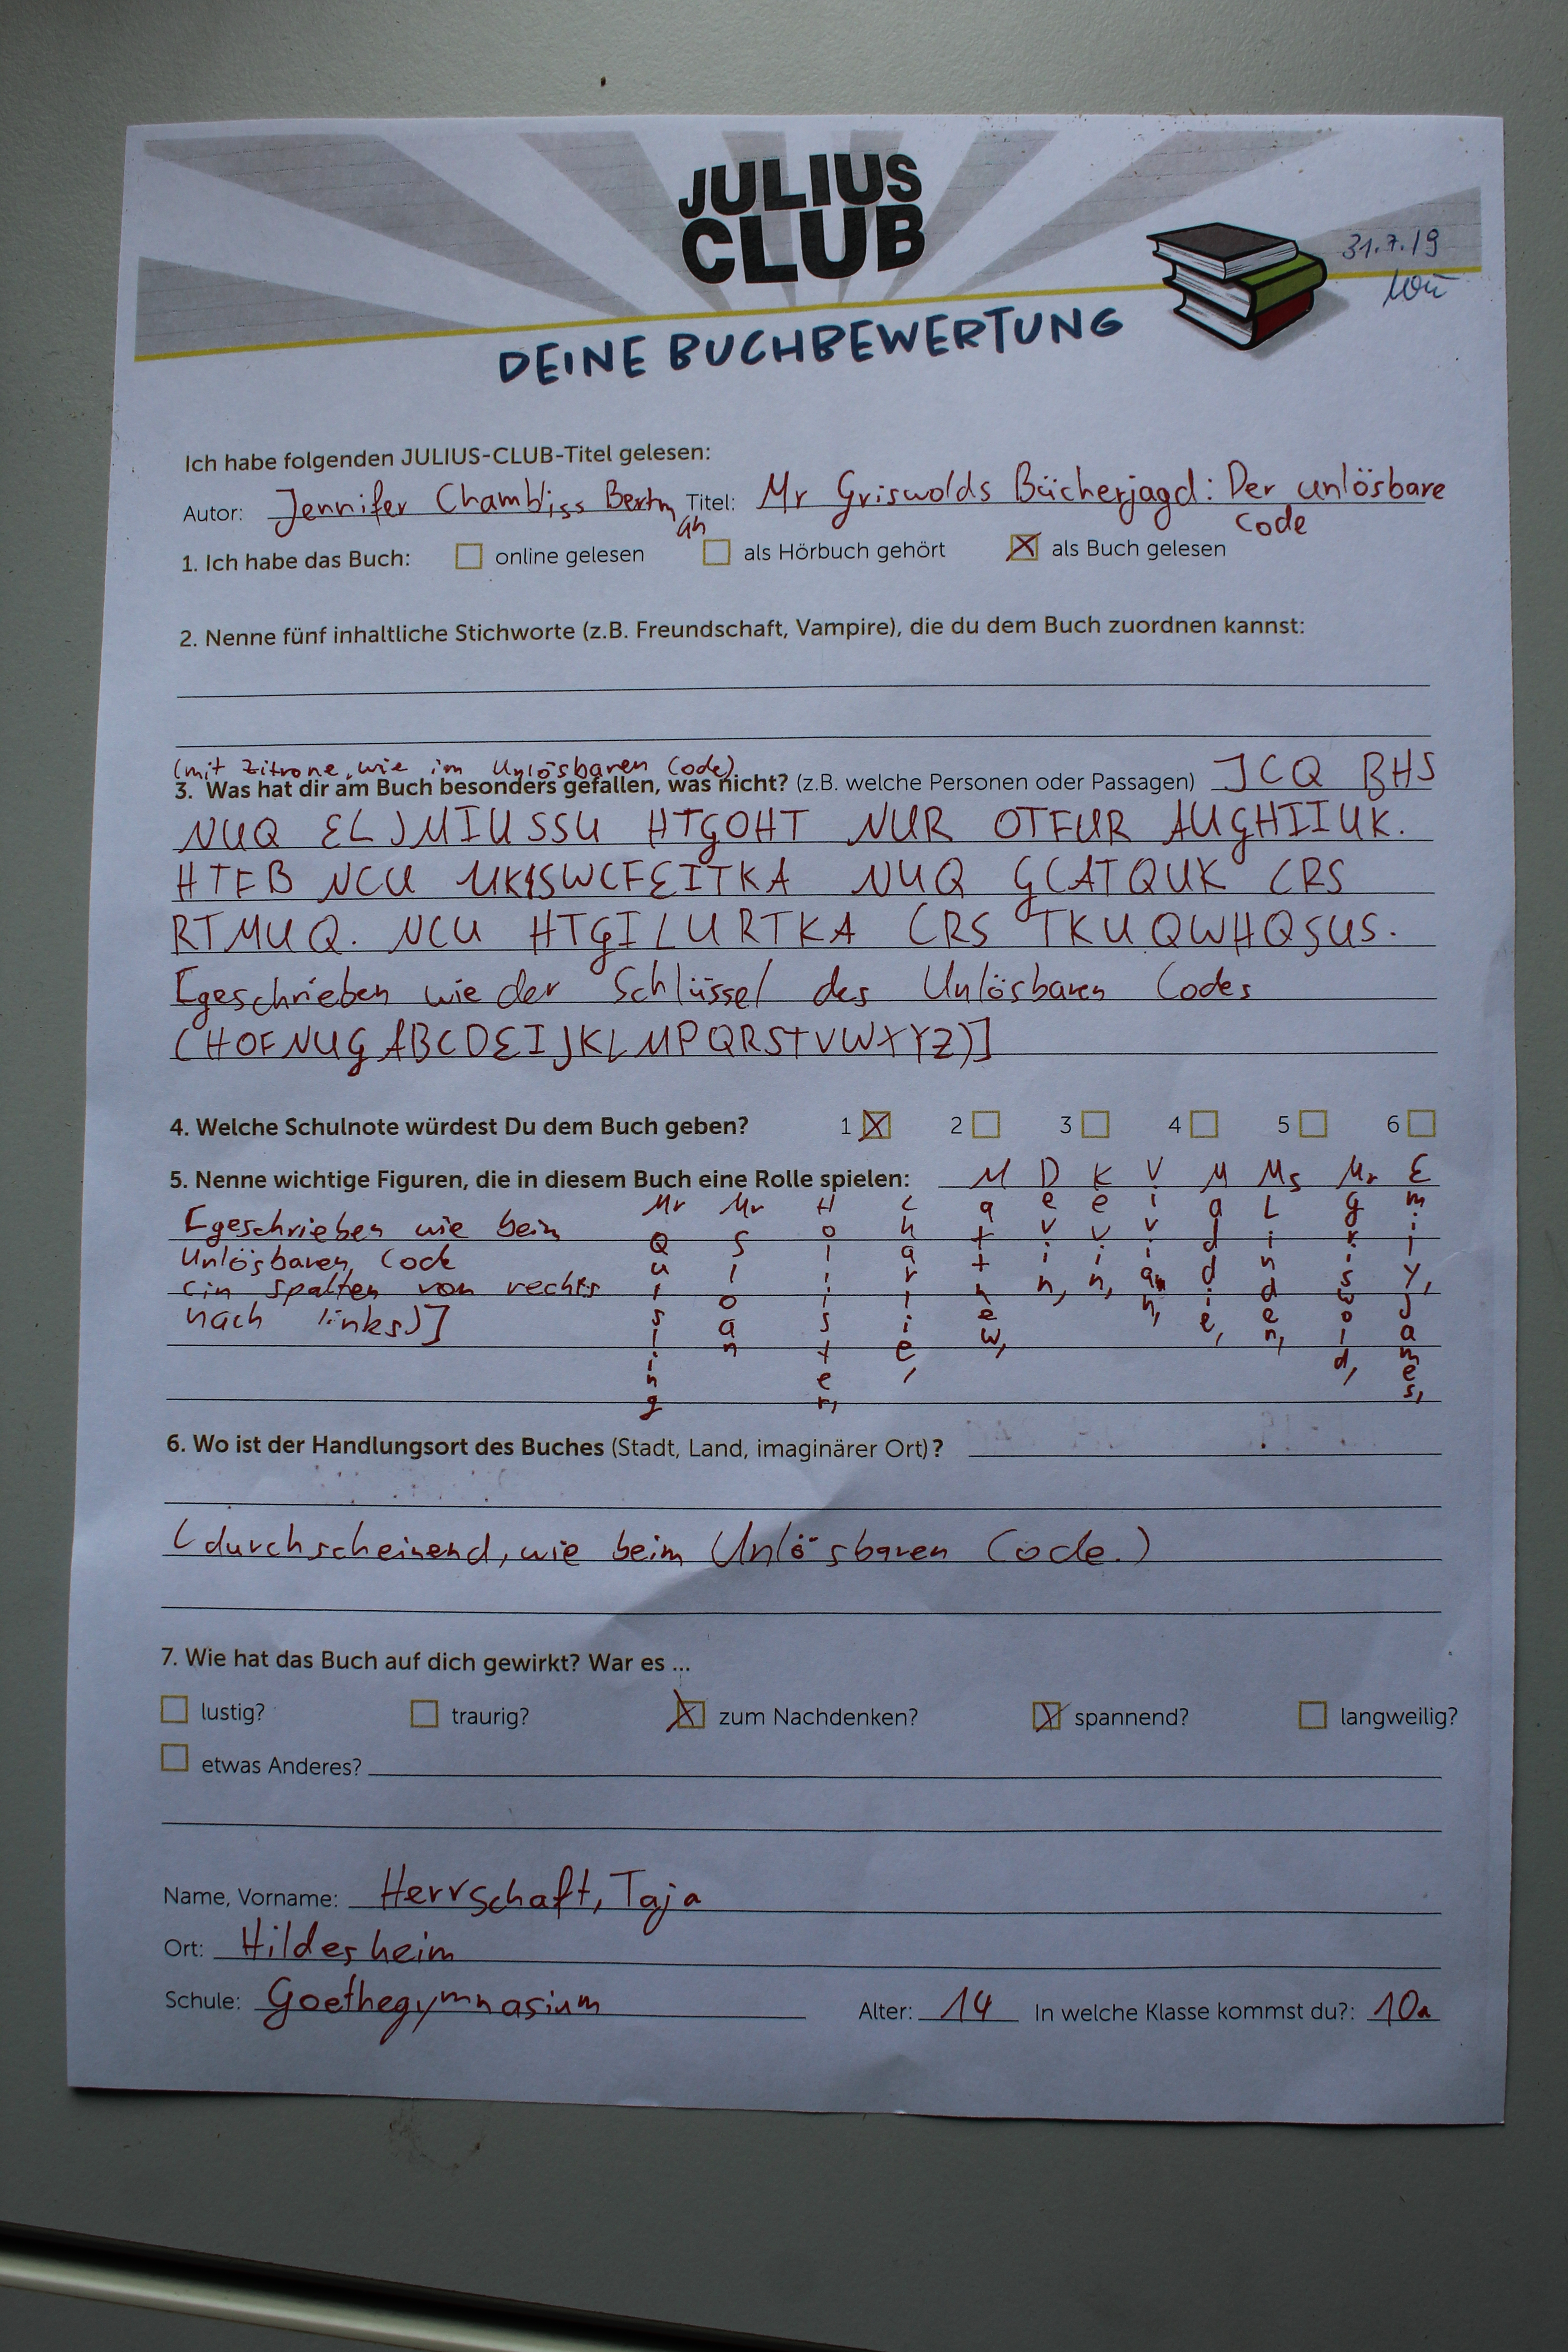 JULIUS
CLUB
31.7.19
DEINE BUCHBEWERTUNG
Ich habe folgenden JULIUS-CLUB-Titel gelesen:
Autor: Jennifer Chambliss Bertman Titel: Mr Griswolds Bücherjagd: Der unlösbare
Code
1. Ich habe das Buch: online gelesen als Hörbuch gehört als Buch gelesen
2. Nenne fünf inhaltliche Stichworte (z.B. Freundschaft, Vampire), die du dem Buch zuordnen kannst:
(mit Zitrone, wie im Unlösbaren Code)
3. Was hat dir am Buch besonders gefallen, was nicht? (z.B. welche Personen oder Passagen) JCQ BHS
NUQ ELJMIUSSU HTGOHT NUR OTFUR AUGHIIUK.
HTFB NCU UKSWCFEITKA NUQ GCATQUK CRS
RTMUQ. NCU HTGILURTKA CRS TKUQWHQSUS.
[geschrieben wie der Schlüssel des Unlösbaren Codes
(HOFNUGABCDEIJKLMPQRSTVWXYZ)]
4. Welche Schulnote würdest Du dem Buch geben? 1 2 3 4 5 6
5. Nenne wichtige Figuren, die in diesem Buch eine Rolle spielen:
[geschrieben wie beim
Unlösbaren Code
(in Spalten von rechts
nach links)]
Emily, James,
Mr Griswold,
Ms Linden,
Maddie,
Vivian,
Kevin,
Devin,
Matthew,
Charlie,
Hollister,
Mr Sloan
Mr Quisling
6. Wo ist der Handlungsort des Buches (Stadt, Land, imaginärer Ort)?
(durchscheinend, wie beim Unlösbaren Code.)
7. Wie hat das Buch auf dich gewirkt? War es ...
lustig? traurig? zum Nachdenken? spannend? langweilig?
etwas Anderes?
Name, Vorname: Herrschaft, Taja
Ort: Hildesheim
Schule: Goethegymnasium Alter: 14 In welche Klasse kommst du?: 10a